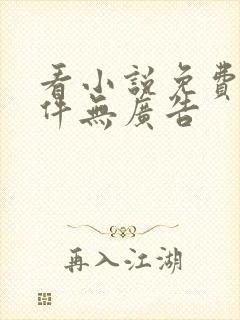 看小說免費
件無廣告
再入江湖